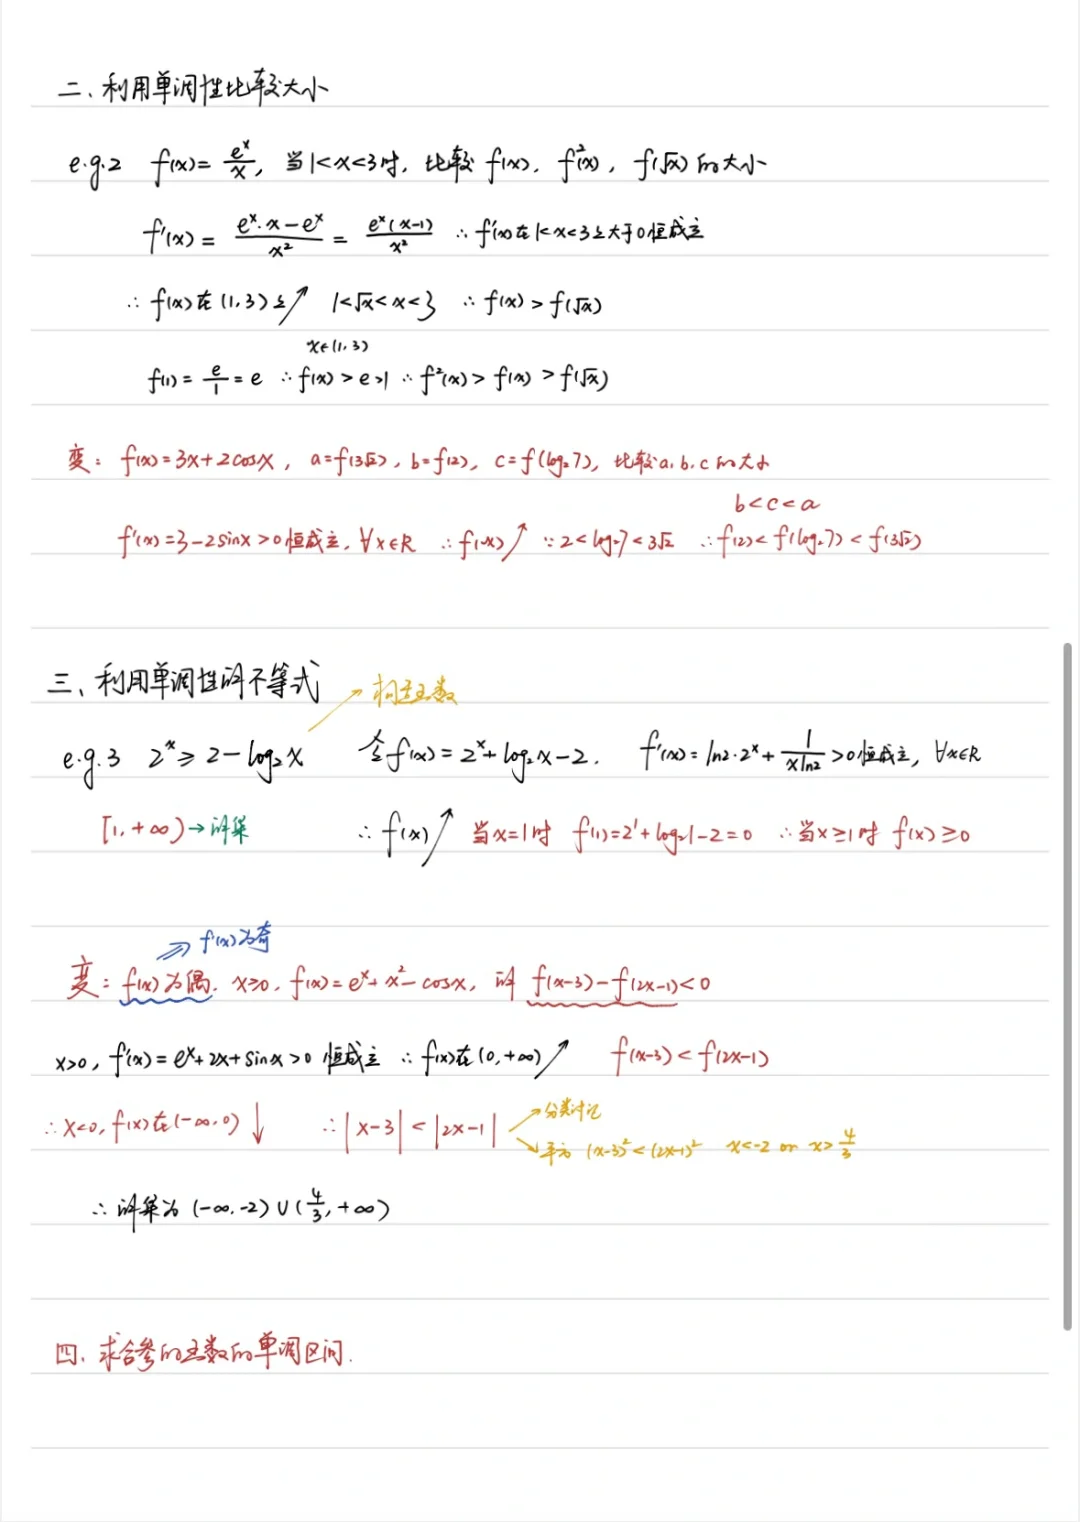 二、利用单调性比较大小
e.g.2 f(x)=e^x/x, 当1<x<3时, 比较 f(x), f²(x), f(√x)的大小
f'(x)=(e^x·x-e^x)/x²=e^x(x-1)/x² ∴f'(x)在1<x<3上大于0恒成立
∴f(x)在(1,3)上↗ 1<√x<x<3 ∴f(x)>f(√x)
x∈(1,3)
f(1)=e/1=e ∴f(x)>e>1 ∴f²(x)>f(x)>f(√x)
变: f(x)=3x+2cosx, a=f(3√2), b=f(2), c=f(log₂7), 比较a.b.c的大小
b<c<a
f'(x)=3-2sinx>0恒成立, ∀x∈R ∴f(x)↗ ∵2<log₂7<3√2 ∴f(2)<f(log₂7)<f(3√2)
三、利用单调性解不等式
构造函数
e.g.3 2^x≥2-log₂x 令f(x)=2^x+log₂x-2. f'(x)=ln2·2^x+1/(xln2)>0恒成立, ∀x∈R
[1,+∞)→解集 ∴f(x)↗ 当x=1时 f(1)=2¹+log₂1-2=0 ∴当x≥1时 f(x)≥0
⇒f'(x)为奇
变: f(x)为偶. x≥0, f(x)=e^x+x²-cosx, 解 f(x-3)-f(2x-1)<0
x>0, f'(x)=e^x+2x+sinx>0 恒成立 ∴f(x)在(0,+∞)↗ f(x-3)<f(2x-1)
∴x<0, f(x)在(-∞,0)↓ ∴|x-3|<|2x-1| →分类讨论
→平方 (x-3)²<(2x-1)² x<-2 or x>4/3
∴解集为(-∞,-2)∪(4/3,+∞)
四、求含参的函数的单调区间.